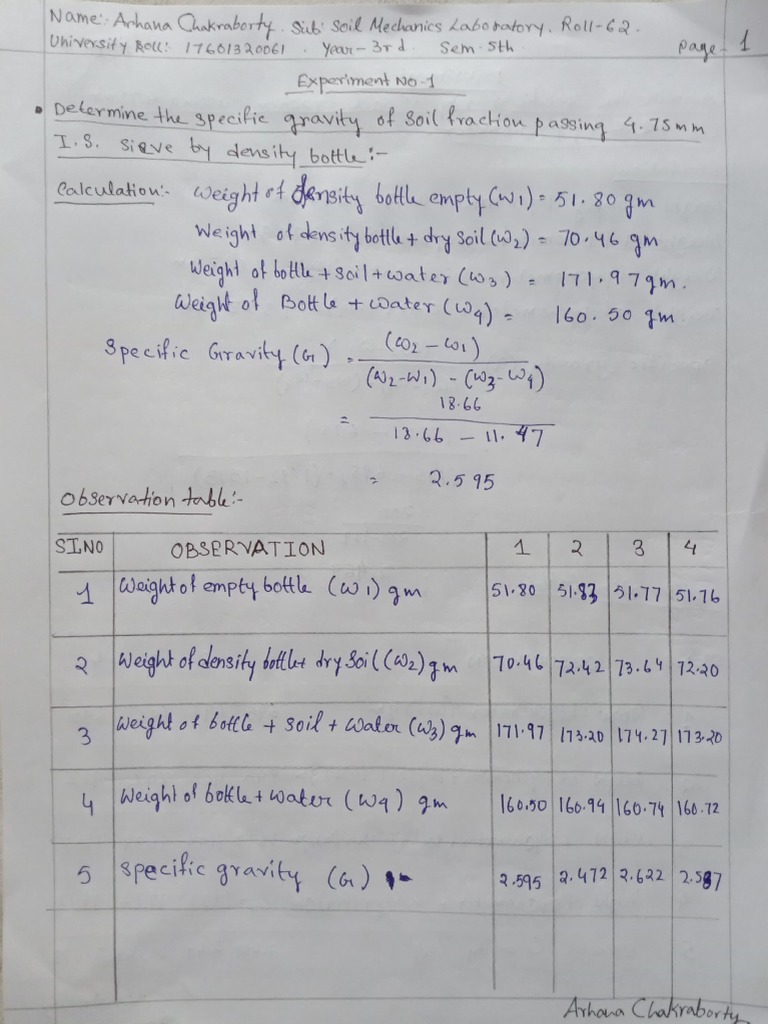 Name:- Arhana Chakraborty. Sub: Soil Mechanics Laboratory. Roll-62.
University Roll: 17601320061. Year-3rd. Sem-5th.
Page-1
Experiment No-1
• Determine the specific gravity of soil fraction passing 4.75mm
I.S. sieve by density bottle:-
Calculation:- Weight of density bottle empty (W1) = 51.80 gm
Weight of density bottle + dry Soil (W2) = 70.46 gm
Weight of bottle + soil + water (W3) = 171.97 gm.
Weight of Bottle + water (W4) = 160.50 gm
Specific Gravity (G) = (W2 - W1) / (W2-W1) - (W3-W4)
= 18.66 / 18.66 - 11.47
= 2.595
Observation table:-
Sl.NO OBSERVATION 1 2 3 4
1 Weight of empty bottle (W1) gm 51.80 51.83 51.77 51.76
2 Weight of density bottle+ dry Soil (W2) gm 70.46 72.42 73.64 72.20
3 Weight of bottle + soil + Water (W3) gm 171.97 173.20 174.27 173.20
4 Weight of bottle + Water (W4) gm 160.50 160.94 160.74 160.72
5 specific gravity (G) :- 2.595 2.472 2.622 2.587
Arhana Chakraborty